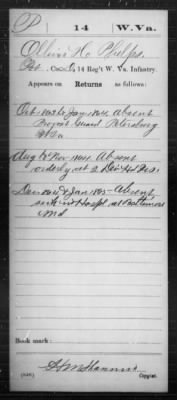 P | 14 | W.Va.
Ollivi H. Phelps
Pvt., Co. C, 14 Reg't W. Va. Infantry.
Appears on Returns as follows:
Oct. 1863 to Jany 1864, Absent
Provost Guard Petersburg
W.Va
Aug to Nov 1864 Absent
orderly at 2 Div Hd Qrs.
Dec 1864 & Jan 1865 Absent,
sick in Hospl. at Baltimore
Md
Book mark:
(546)
Copyist.